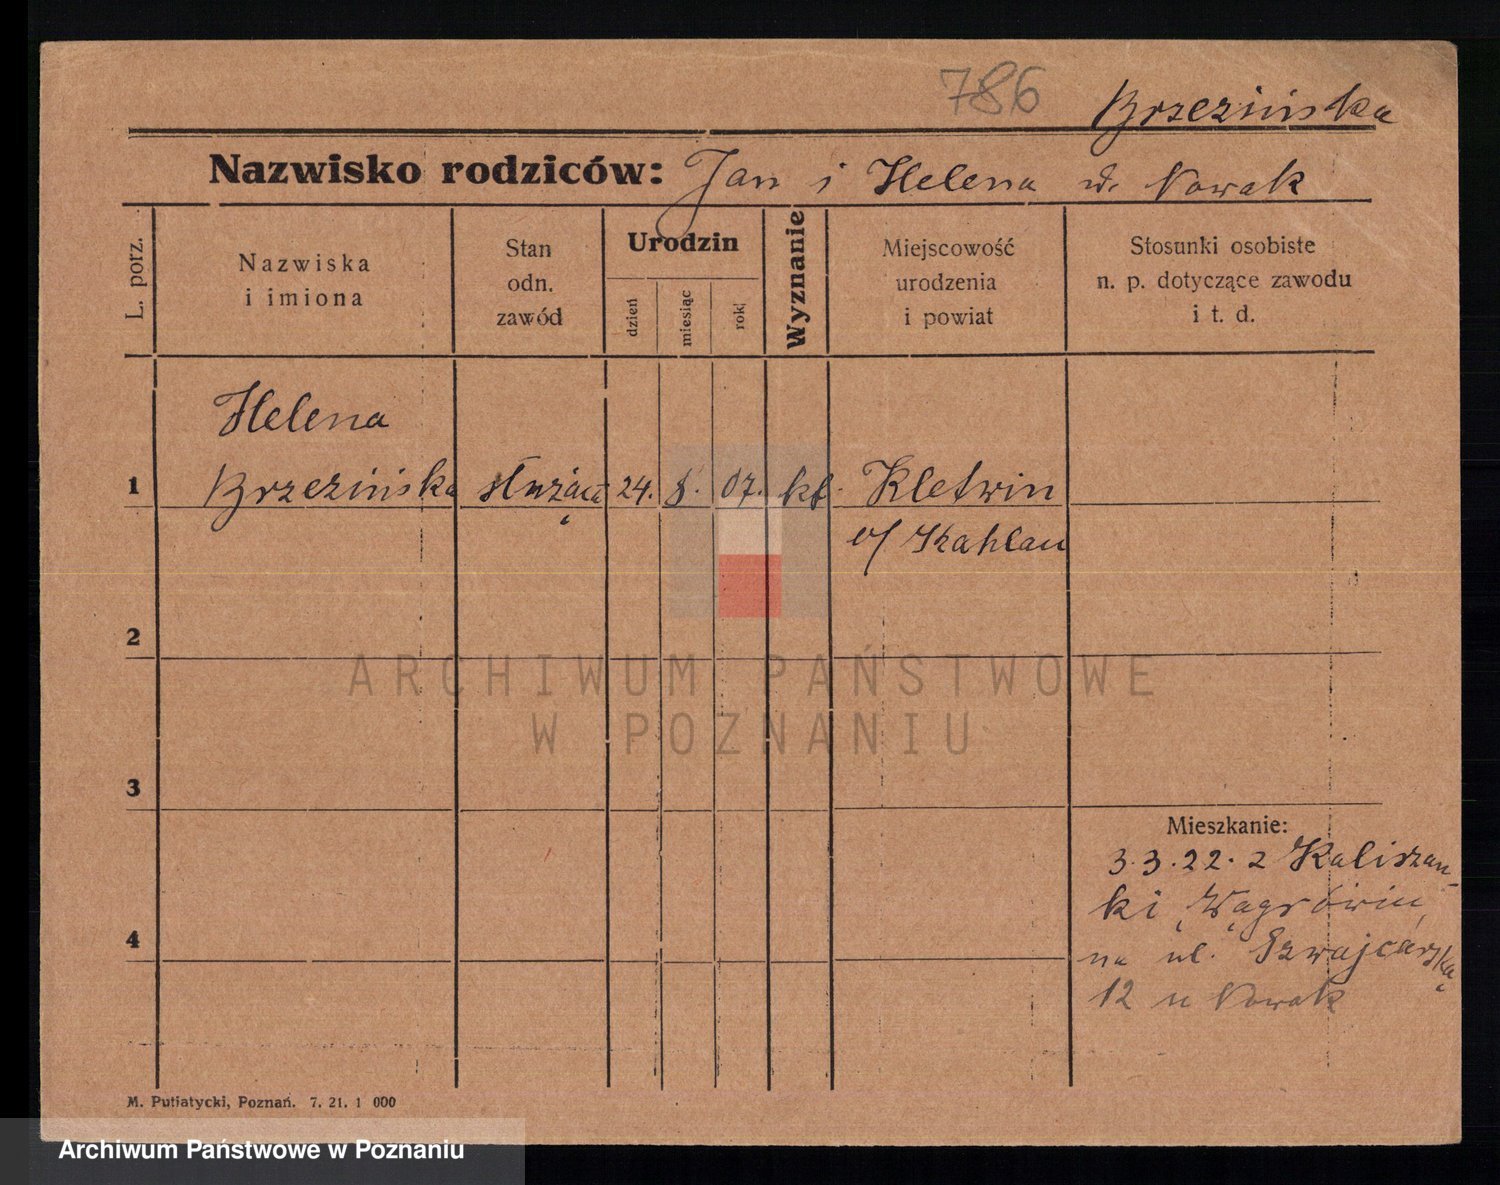 786
Brzezińska
Nazwisko rodziców: Jan i Helena d. Nowak
L. porz.
Nazwiska
i imiona
Stan
odn.
zawód
Urodzin
dzień
miesiąc
rok
Wyznanie
Miejscowość
urodzenia
i powiat
Stosunki osobiste
n. p. dotyczące zawodu
i t. d.
Helena
1 Brzezińska służąca 24. 8. 07. kt. Kletwin
2
3
4
Mieszkanie:
3.3.22. z Kaliszan-
ki, Wągrówiu,
na ul. Szwajcarską
12 u Nowak
M. Putiatycki, Poznań. 7. 21. 1 000
ARCHIWUM PAŃSTWOWE
W POZNANIU
Archiwum Państwowe w Poznaniu